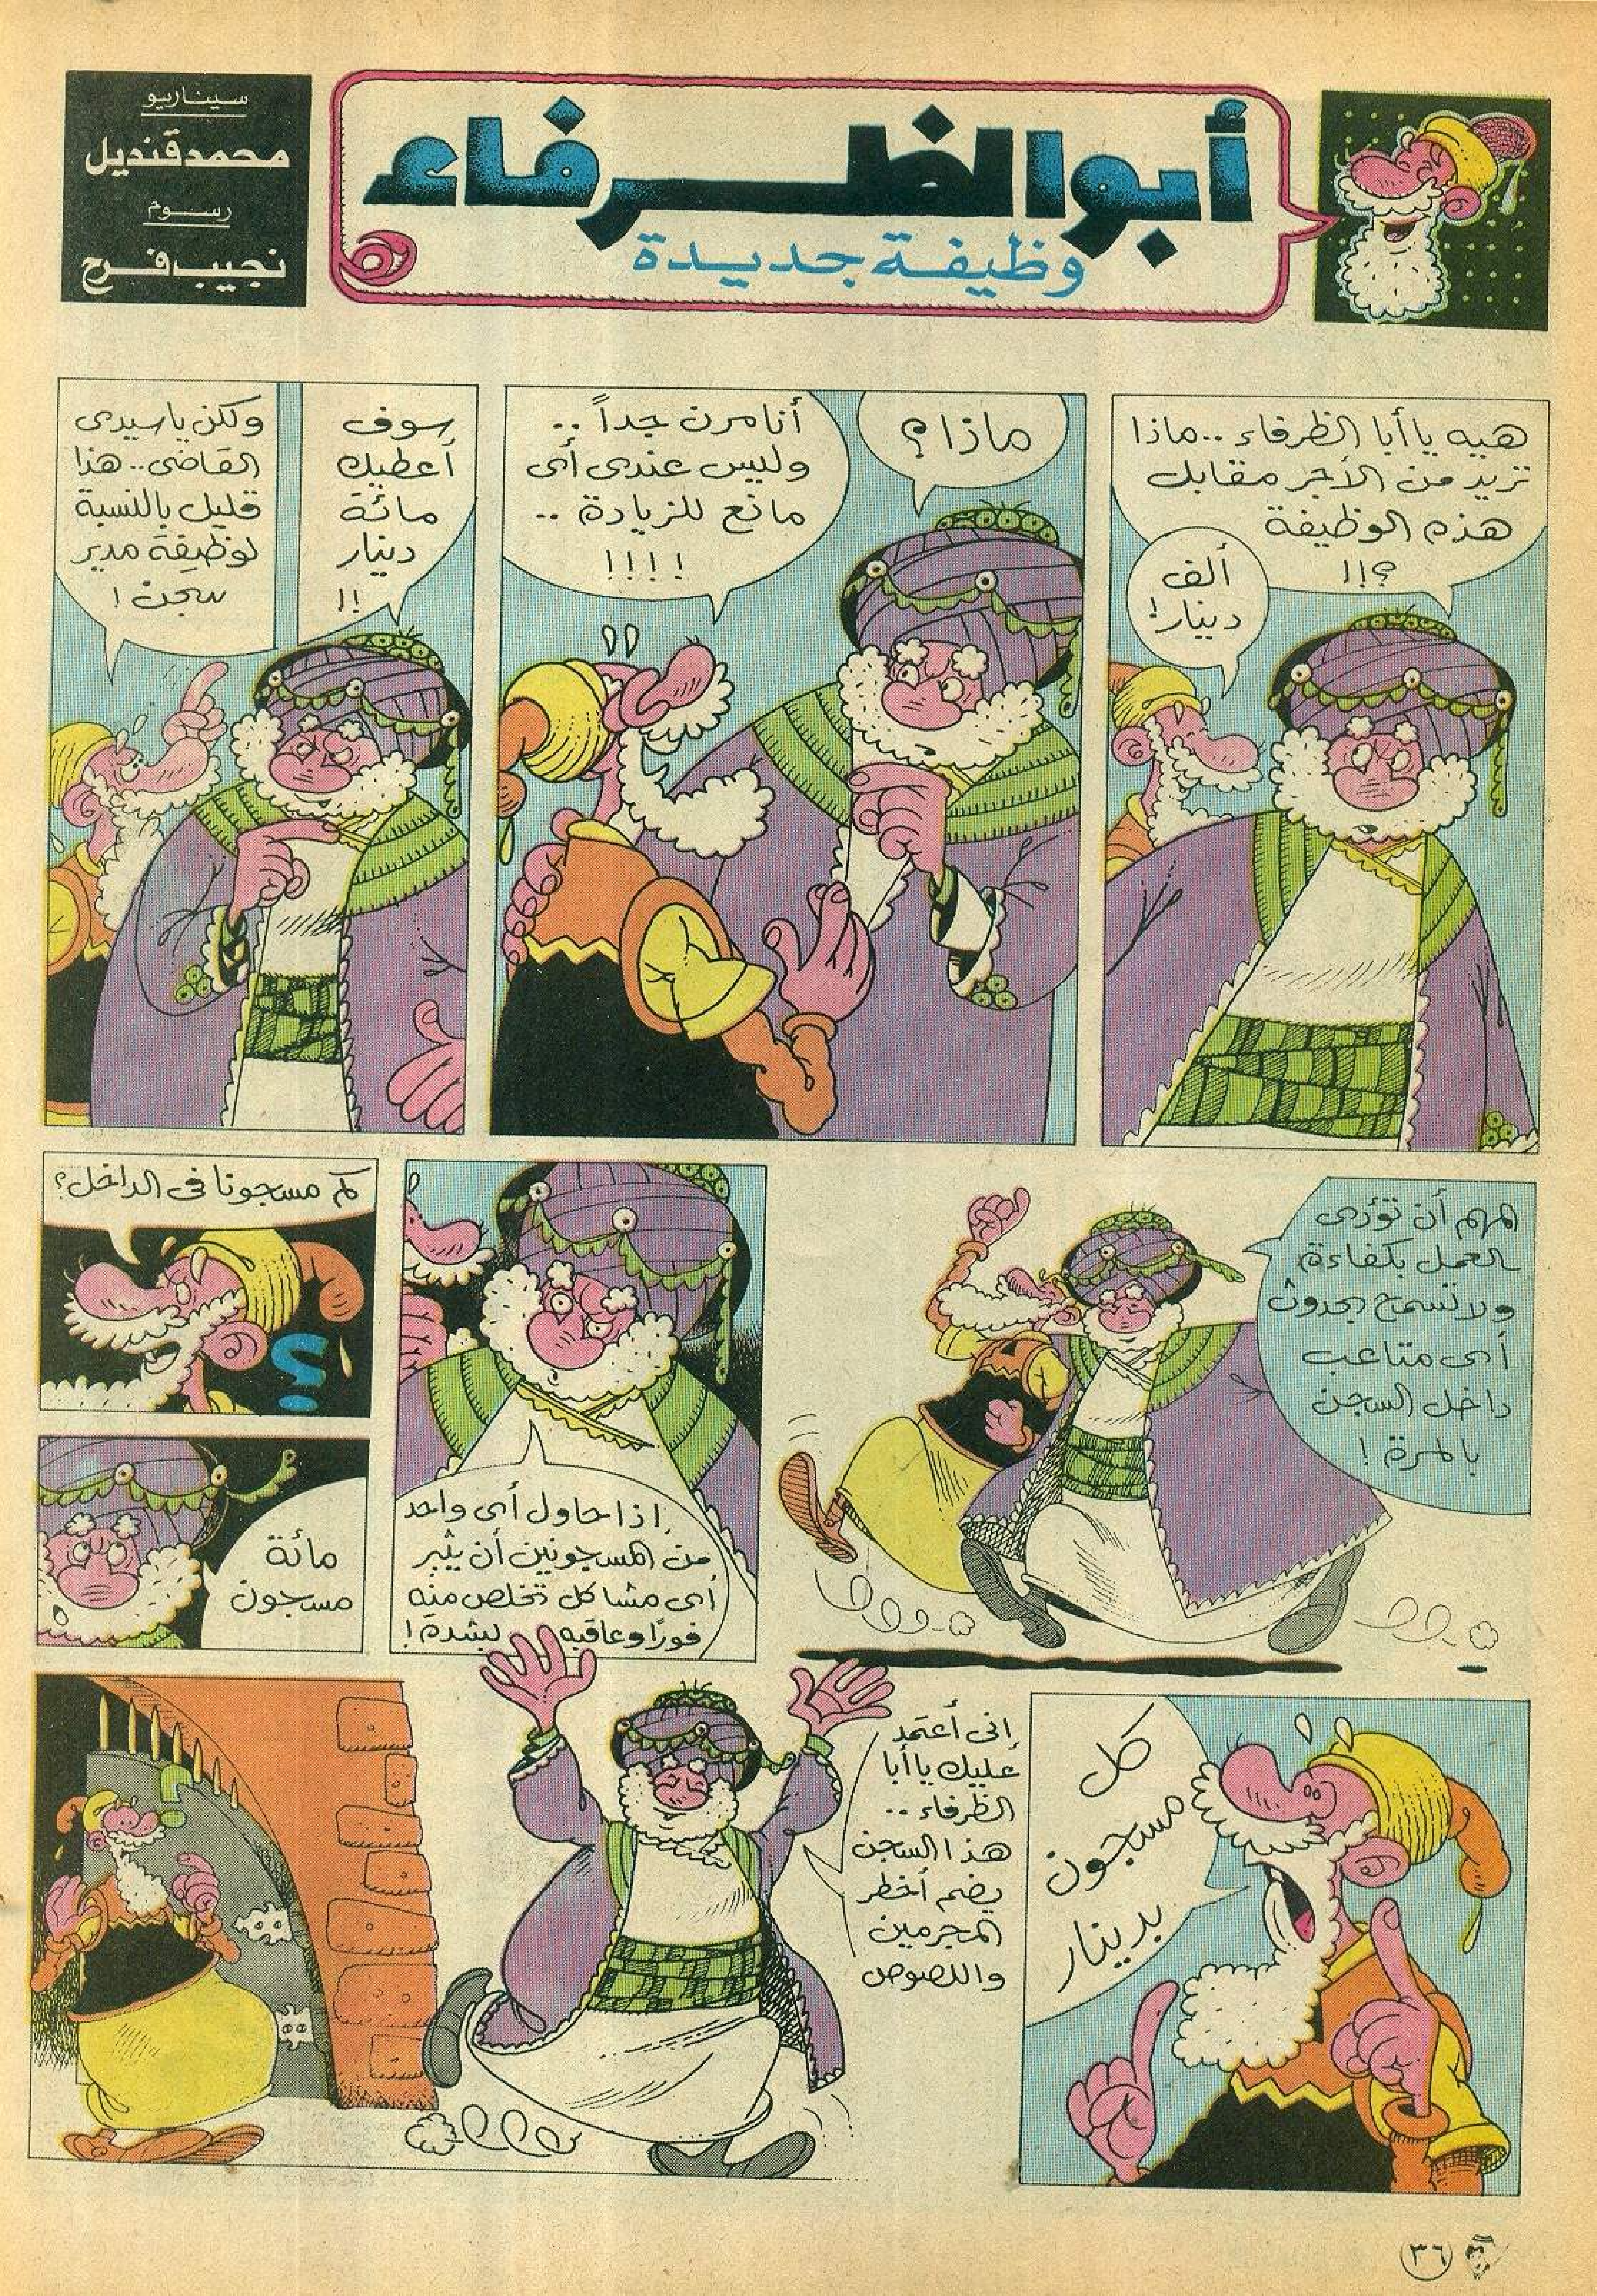 أبو الظرفاء
وظيفة جديدة
سيناريو
محمد قنديل
رسوم
نجيب فرح
هيه يا أبا الظرفاء .. ماذا
تريد من الأجر مقابل
هذه الوظيفة
؟!!
ألف
دينار!
ماذا؟
أنا مرن جداً ..
وليس عندى أى
مانع للزيادة ..
!!!!
سوف
أعطيك
مائة
دينار
!!
ولكن يا سيدى
القاضى .. هذا
قليل بالنسبة
لوظيفة مدير
سجن!
المهم أن تؤدى
العمل بكفاءة
ولا تسمح بحدوث
أى متاعب
داخل السجن
بالمرة!
إذا حاول أى واحد
من المسجونين أن يثير
أى مشاكل تخلص منه
فورًا وعاقبه بشدة!
كم مسجونا فى الداخل؟
؟
مائة
مسجون
كل
مسجون
بدينار
إنى أعتمد
عليك يا أبا
الظرفاء ..
هذا السجن
يضم أخطر
المجرمين
واللصوص
؟
٣٦